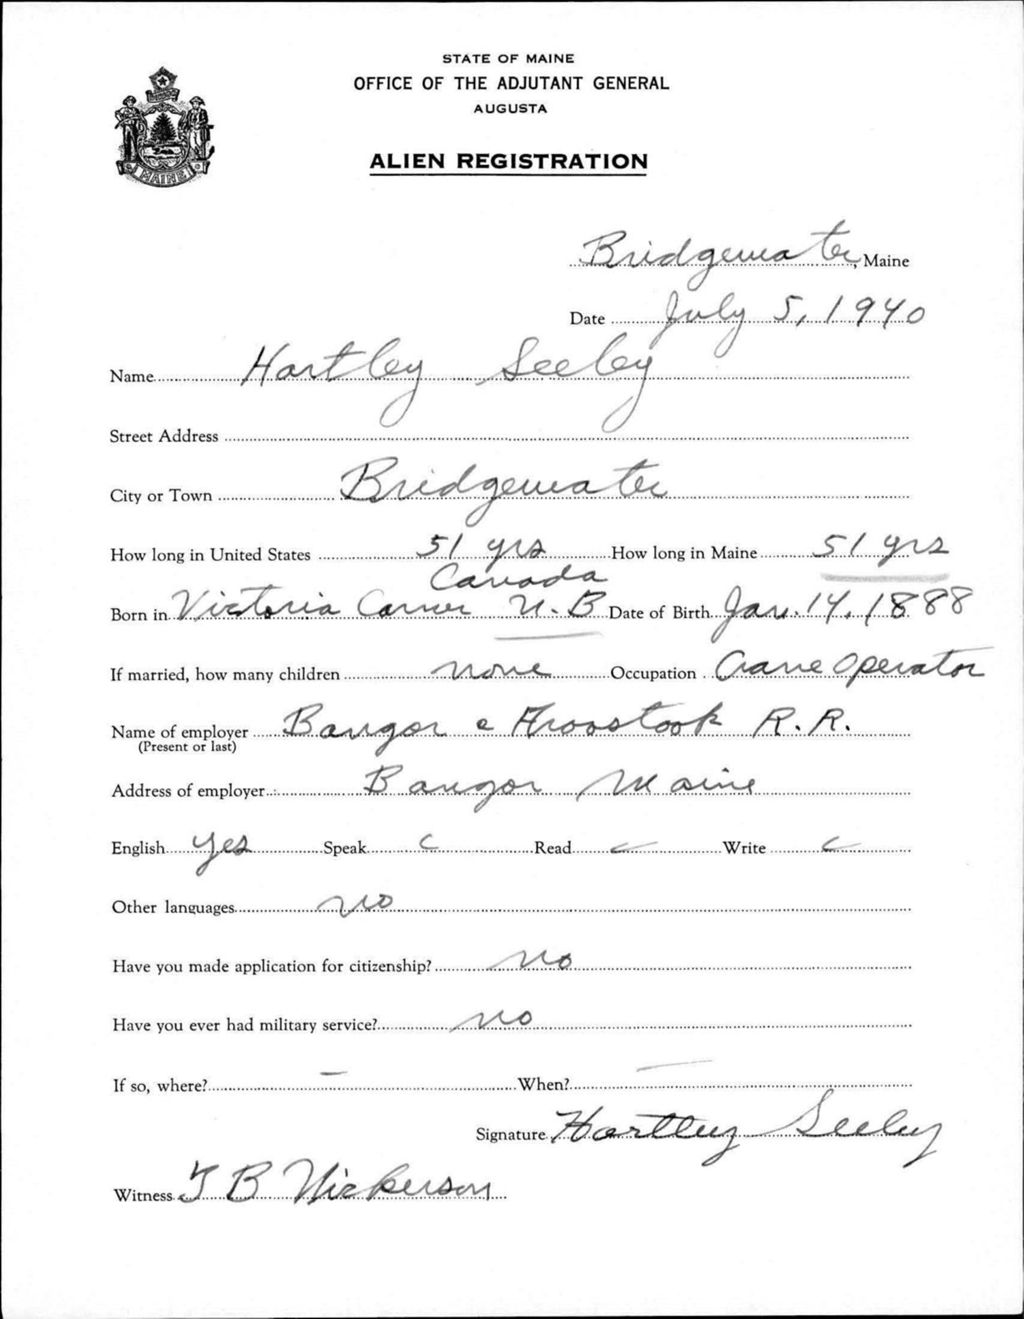 STATE OF MAINE
OFFICE OF THE ADJUTANT GENERAL
AUGUSTA
ALIEN REGISTRATION
MAINE
Bridgewater, Maine
Date July 5, 1940
Name Hartley Seeley
Street Address
City or Town Bridgewater
How long in United States 51 yrs How long in Maine 51 yrs
Canada
Born in Victoria Corner N.B Date of Birth Jan. 14, 1888
If married, how many children none Occupation Crane Operator
Name of employer Bangor & Aroostook R.R.
(Present or last)
Address of employer Bangor Maine
English yes Speak Read Write
Other languages no
Have you made application for citizenship? no
Have you ever had military service? no
If so, where? — When? —
Signature Hartley Seeley
Witness B Nickerson